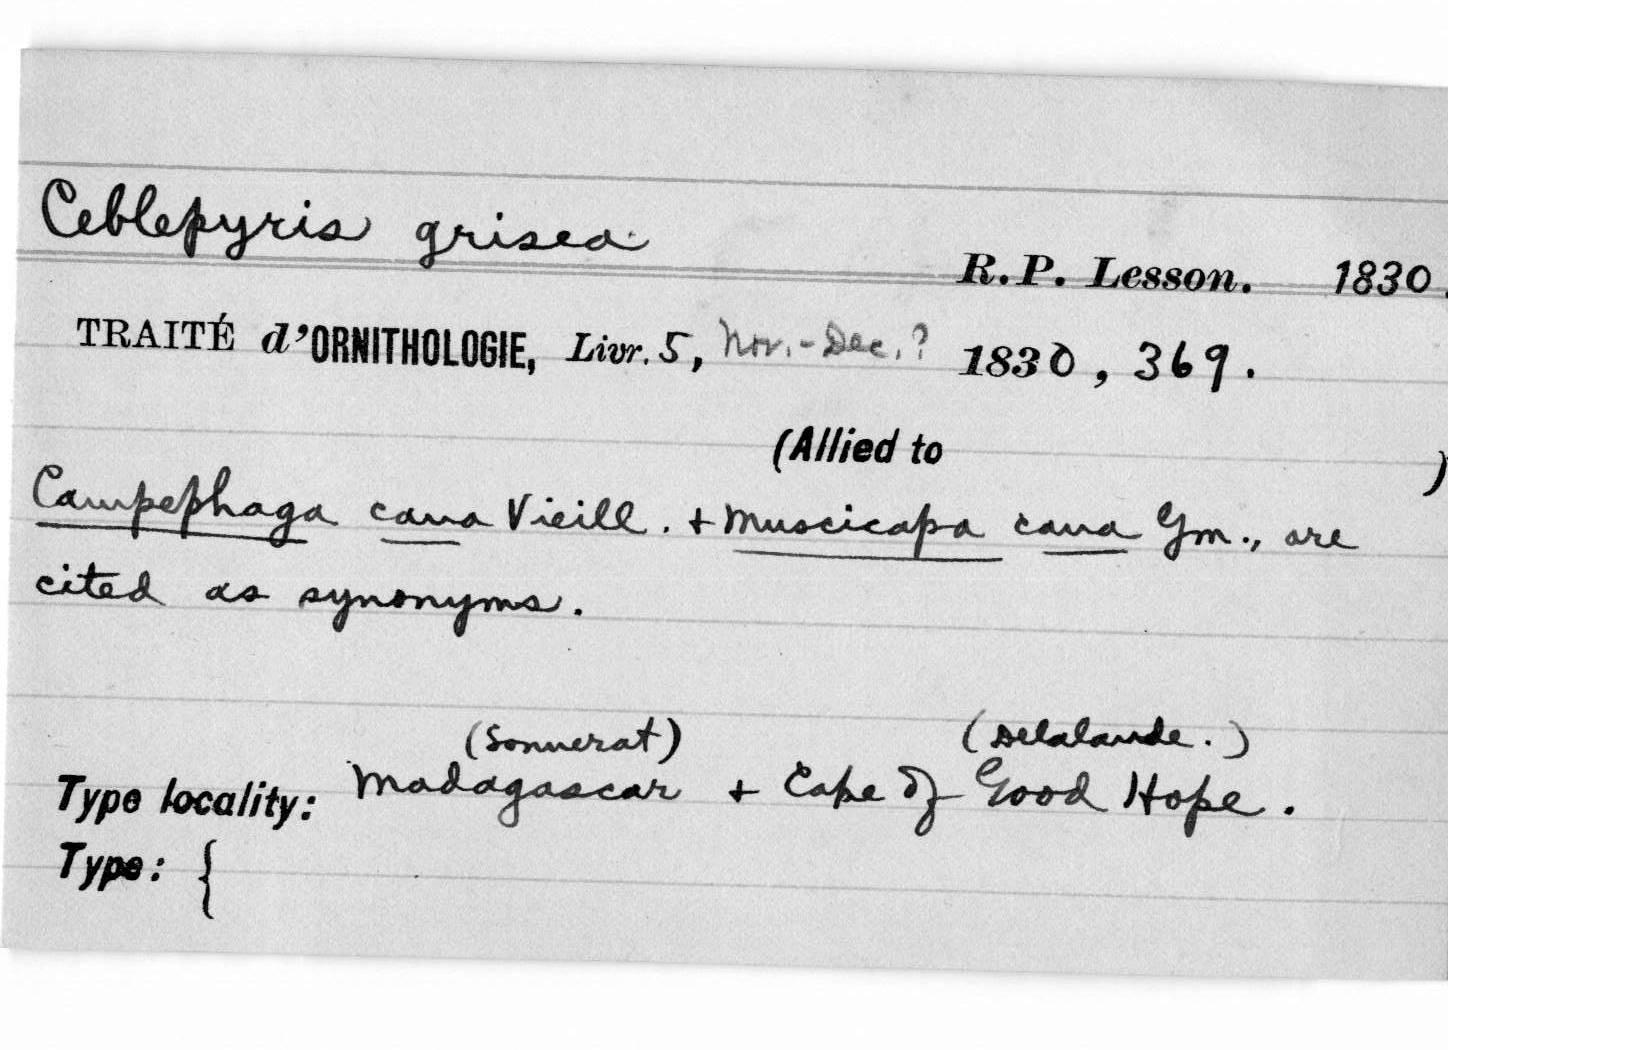 Ceblepyris grisea
R.P. Lesson. 1830.
TRAITÉ d'ORNITHOLOGIE, Livr. 5, Nov.-Dec.? 1830, 369.
(Allied to )
Campephaga cana Vieill. + Muscicapa cana Gm., are
cited as synonyms.
(Sonnerat) (Delalande.)
Type locality: Madagascar + Cape of Good Hope.
Type: {